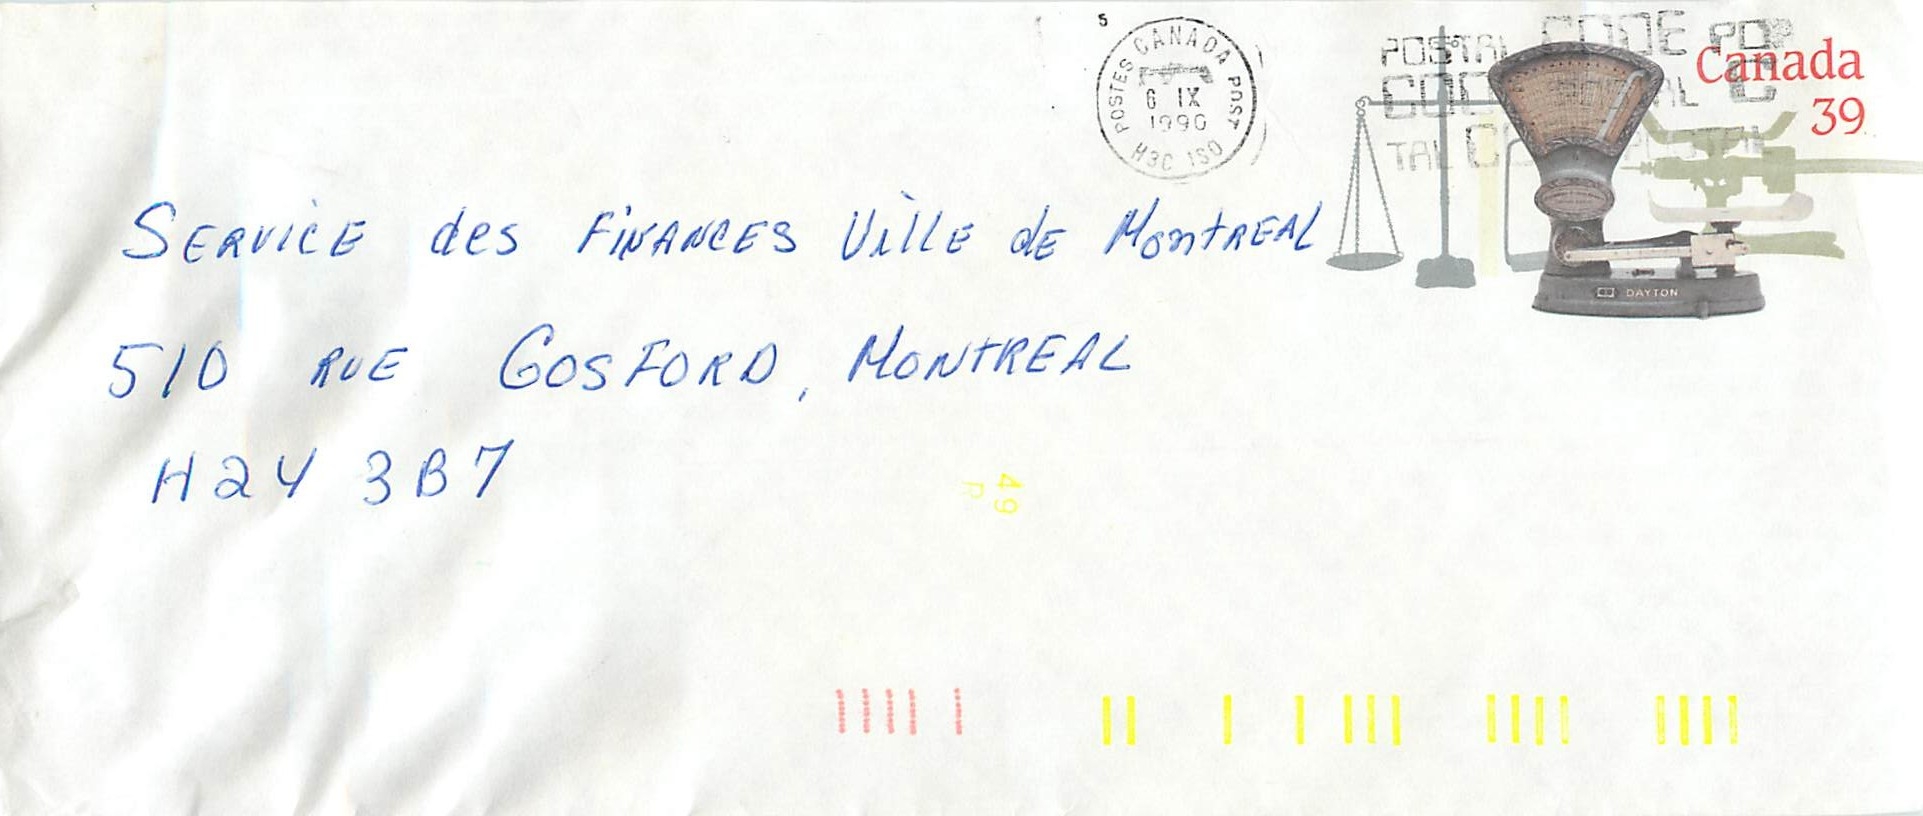 5
POSTES CANADA POST
6 IX
1990
H3C 1S0
POSTAL CODE PO
TAL
Canada
39
DAYTON
SERVICE des FINANCES Ville de MontREAL
510 RUE GOSFORD, MONTREAL
H2Y 3B7
49
R